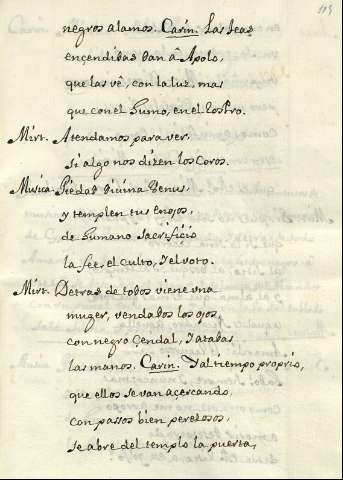 negros alamos. Carin. Las teas
ençendidas dan â Apolo,
que las vê, con la luz, mas
que con el Humo, en el Rostro.
Mirt. Atendamos para ver,
si algo nos dizen los Coros.
Musica. Piedad divina Venus,
y templen tus enojos,
de Humano Sacrificio
la fee, el culto, y el voto.
Mirt. Detras de todos viene una
muger, vendados los ojos,
con negro Çendal, y atadas
las manos. Carin. Y al tiempo proprio,
que ellos se van açercando,
con passos bien perezosos,
se abre del templo la puerta,